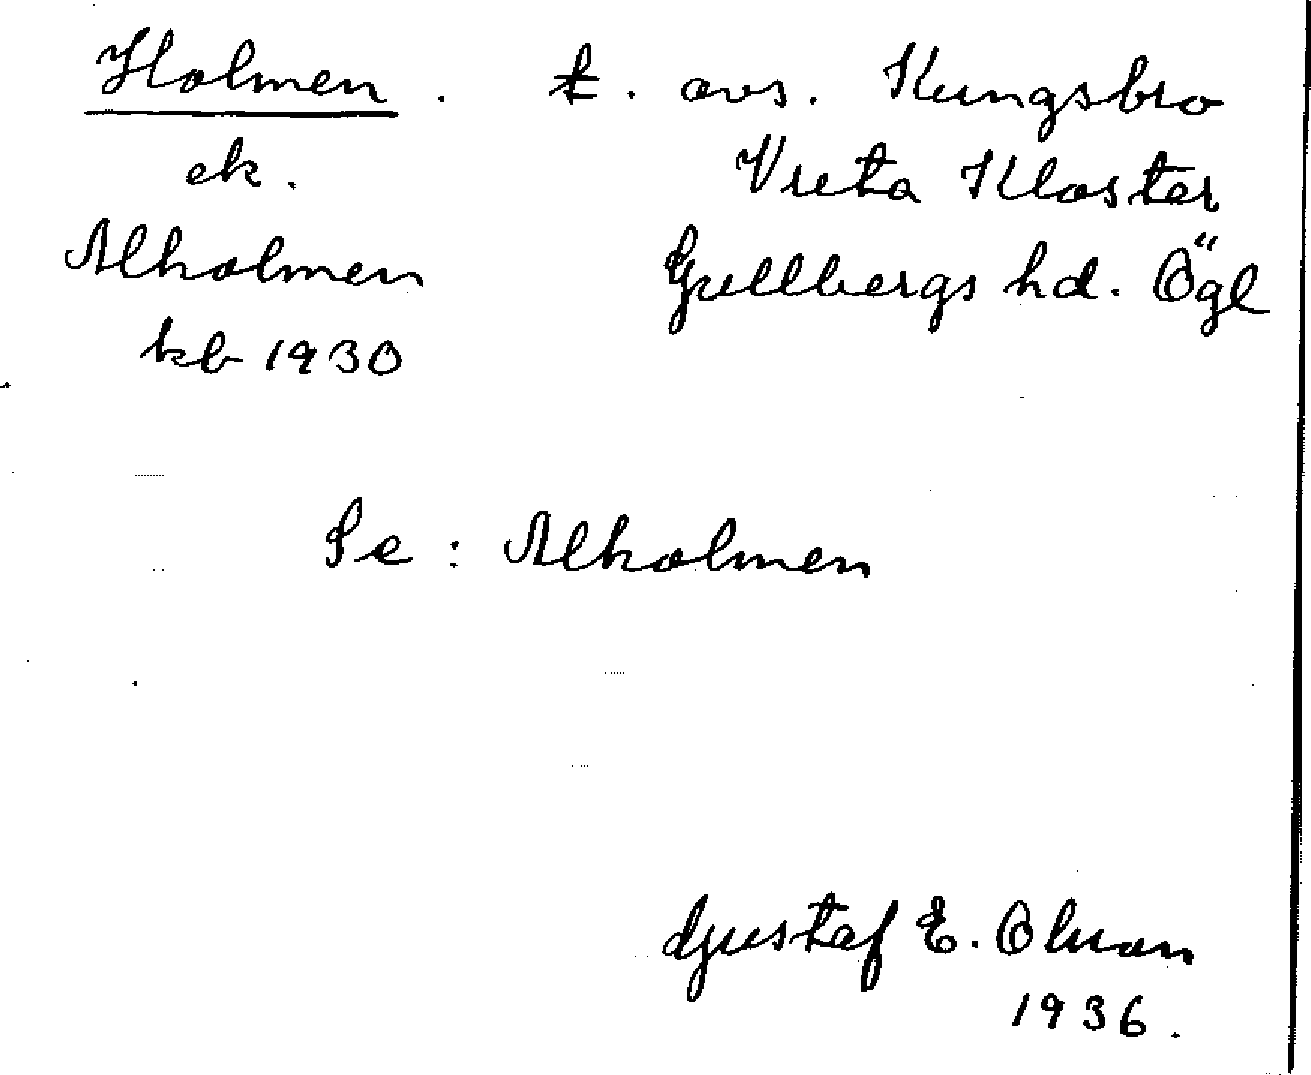 Holmen. t. avs. Kungsbro
ek. Vreta Kloster
Alholmen Gullbergs hd. Ögl
kb 1930
Se: Alholmen
Gustaf E. Olsson
1936.